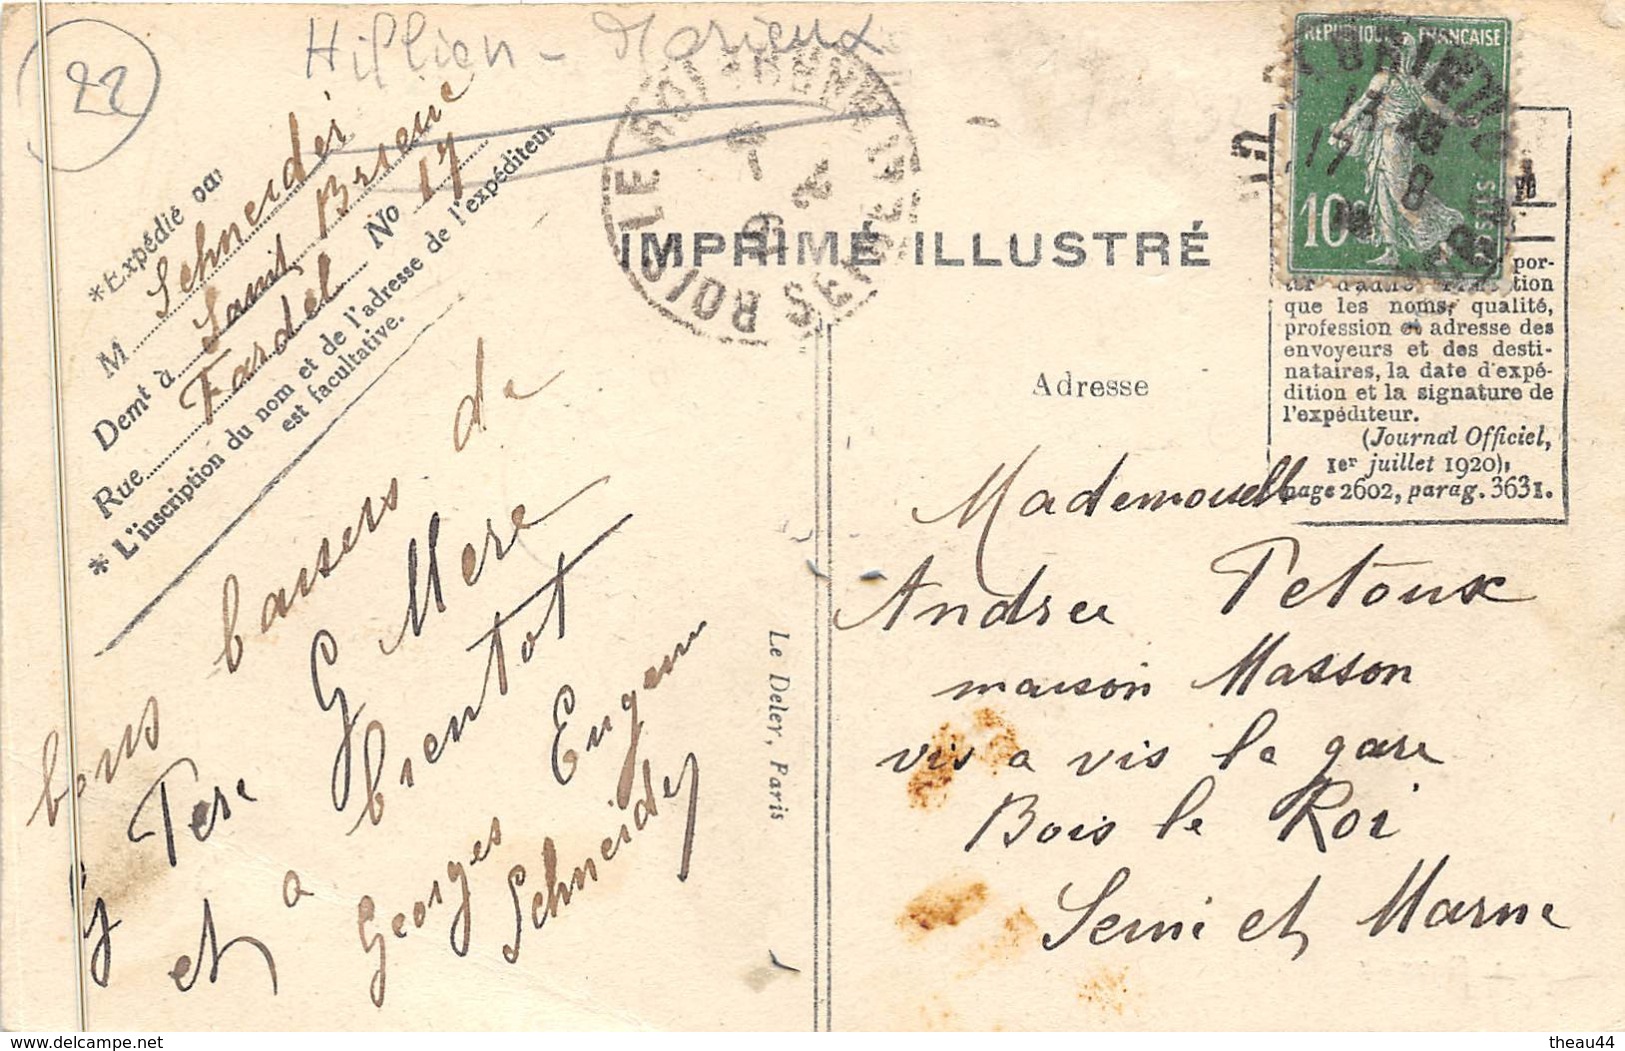 22
Hillien - Morieux
*Expédié par
M Schneider
Demt à Saint Brieuc
Rue Fardel No 17
* L'inscription du nom et de l'adresse de l'expéditeur
est facultative.
bons baisers de
G Pere G Mere
et a bientot
Georges Eugene
Schneider
LE ROI
BOIS
SEINE-ET-MARNE
IMPRIMÉ ILLUSTRÉ
REPUBLIQUE FRANÇAISE
10c
POSTES
BRIEUC
por-
ter d'autre
que les noms, qualité,
profession et adresse des
envoyeurs et des desti-
nataires, la date d'expé-
dition et la signature de
l'expéditeur.
(Journal Officiel,
1er juillet 1920),
page 2602, parag. 3631.
Adresse
Mademoiselle
Andree Petoux
maison Masson
vis a vis la gare
Bois le Roi
Seine et Marne
Le Deley, Paris
www.delcampe.net
theau44